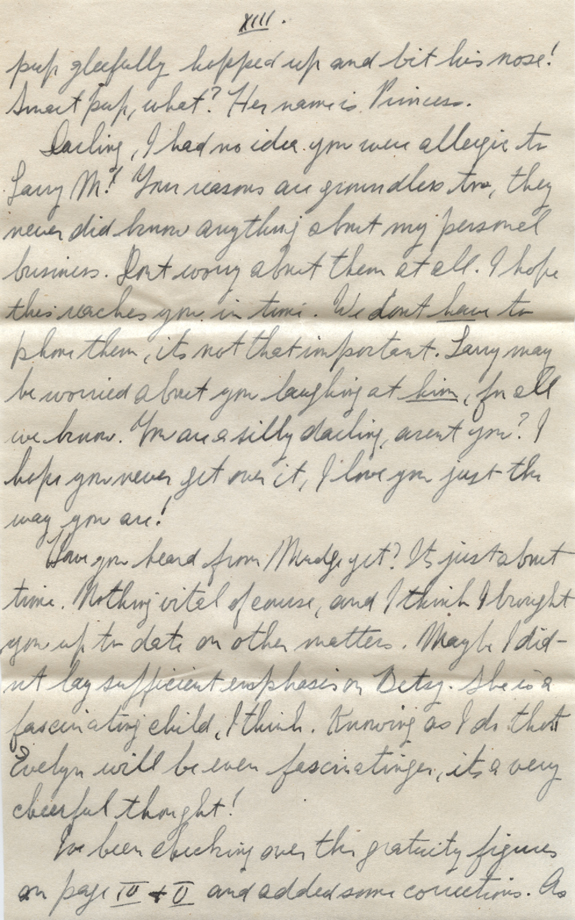 XIII.
pup gleefully hopped up and bit his nose!
Smart pup, what? Her name is Princess.
Darling, I had no idea you were allergic to
Larry M! Your reasons are groundless too, they
never did know anything about my personal
business. Dont worry about them at all. I hope
this reaches you in time. We dont have to
phone them, its not that important. Larry may
be worried about you laughing at him, for all
we know. You are a silly darling, arent you? I
hope you never get over it, I love you just the
way you are!
Have you heard from Mudge yet? Its just about
time. Nothing vital of course, and I think I brought
you up to date on other matters. Maybe I did-
nt lay sufficient emphasis on Betsy. She is a
fascinating child, I think. Knowing as I do that
Evelyn will be even fascinatinger, its a very
cheerful thought!
Ive been checking over this gratuity figures
on page IV + V and added some corrections. As